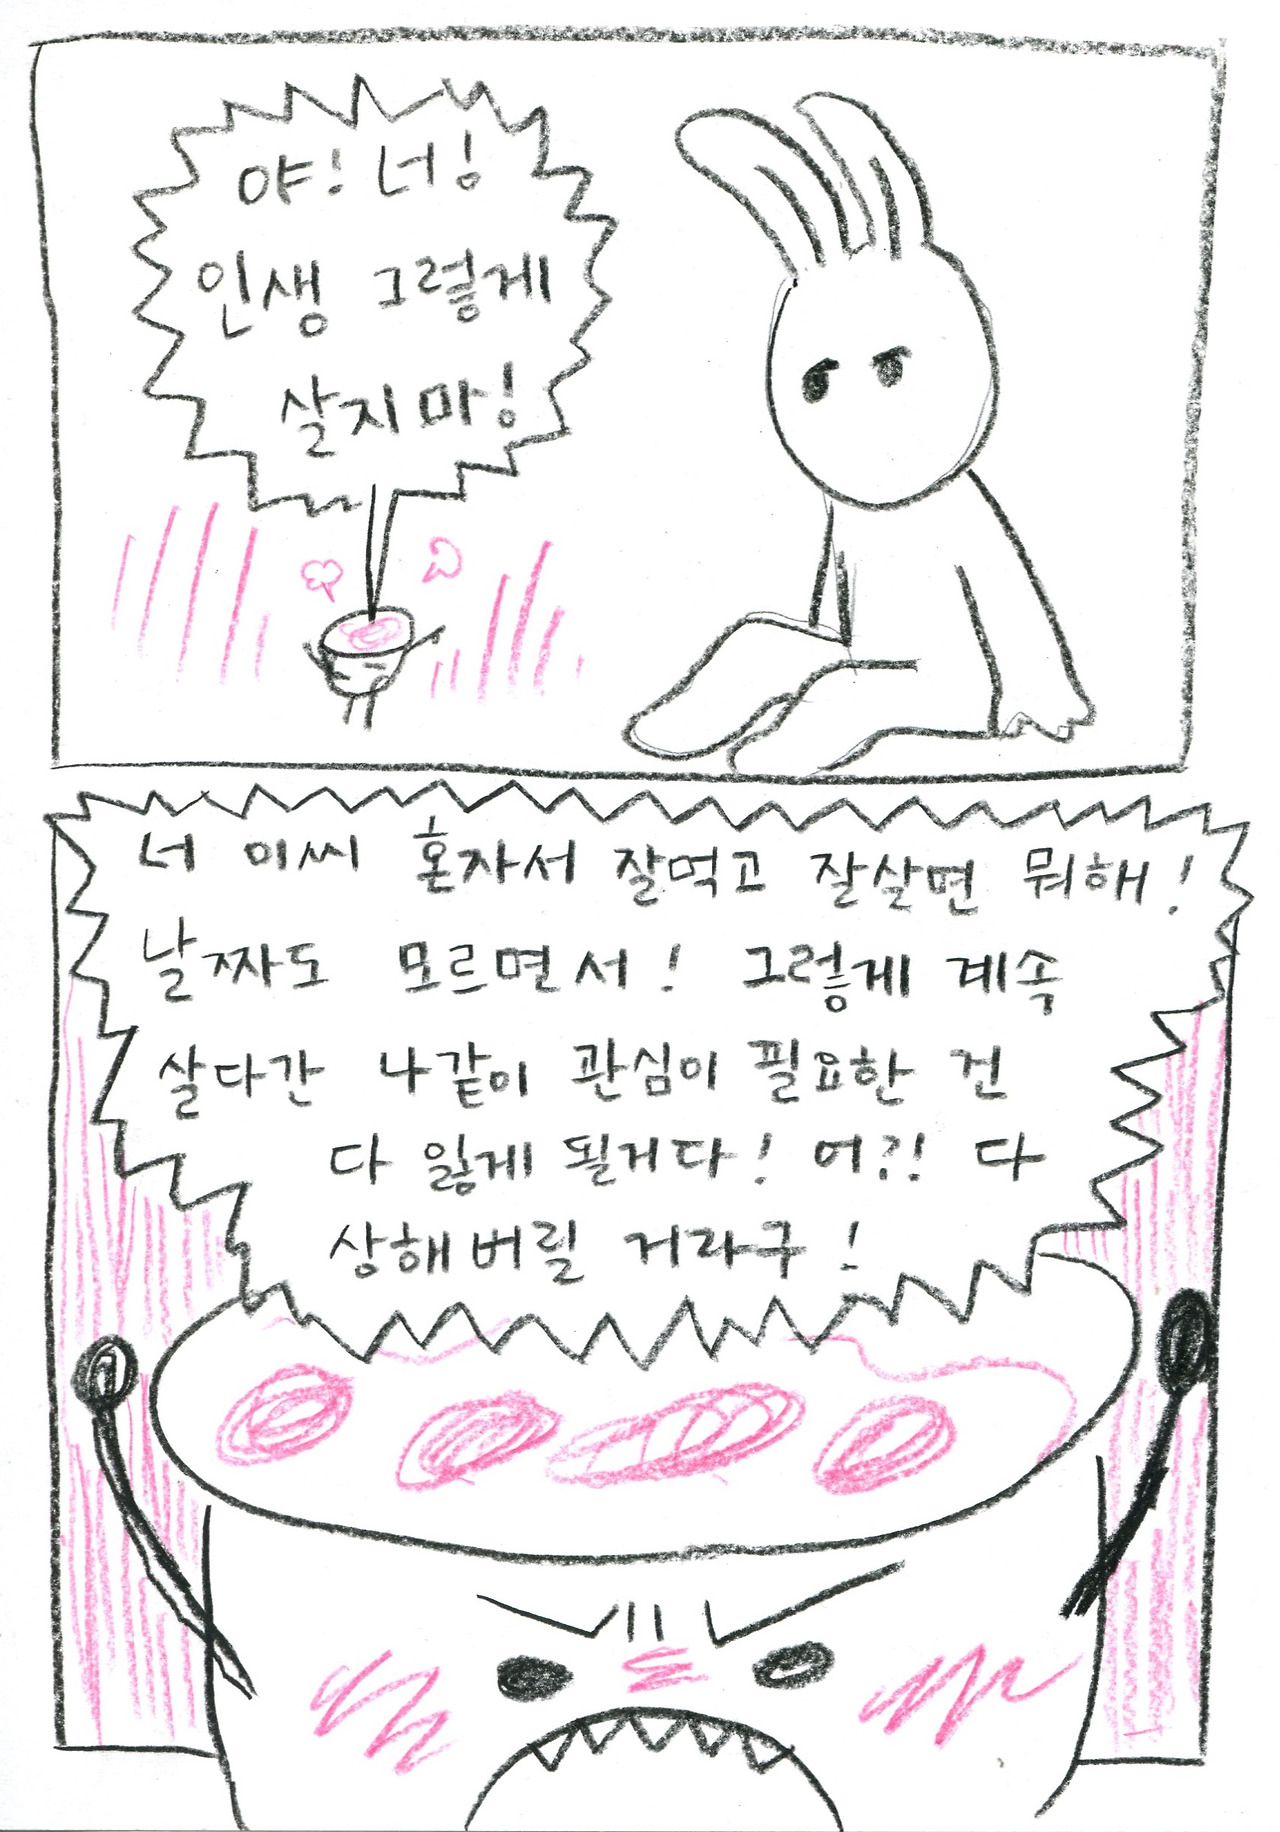 야! 너!
인생 그렇게
살지마!
너 이씨 혼자서 잘먹고 잘살면 뭐해!
날짜도 모르면서! 그렇게 계속
살다간 나같이 관심이 필요한 건
다 잃게 될거다! 어?! 다
상해버릴 거라구!